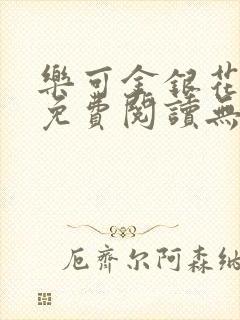 樂可金銀花
免費閱讀無
厄齊尔阿森納